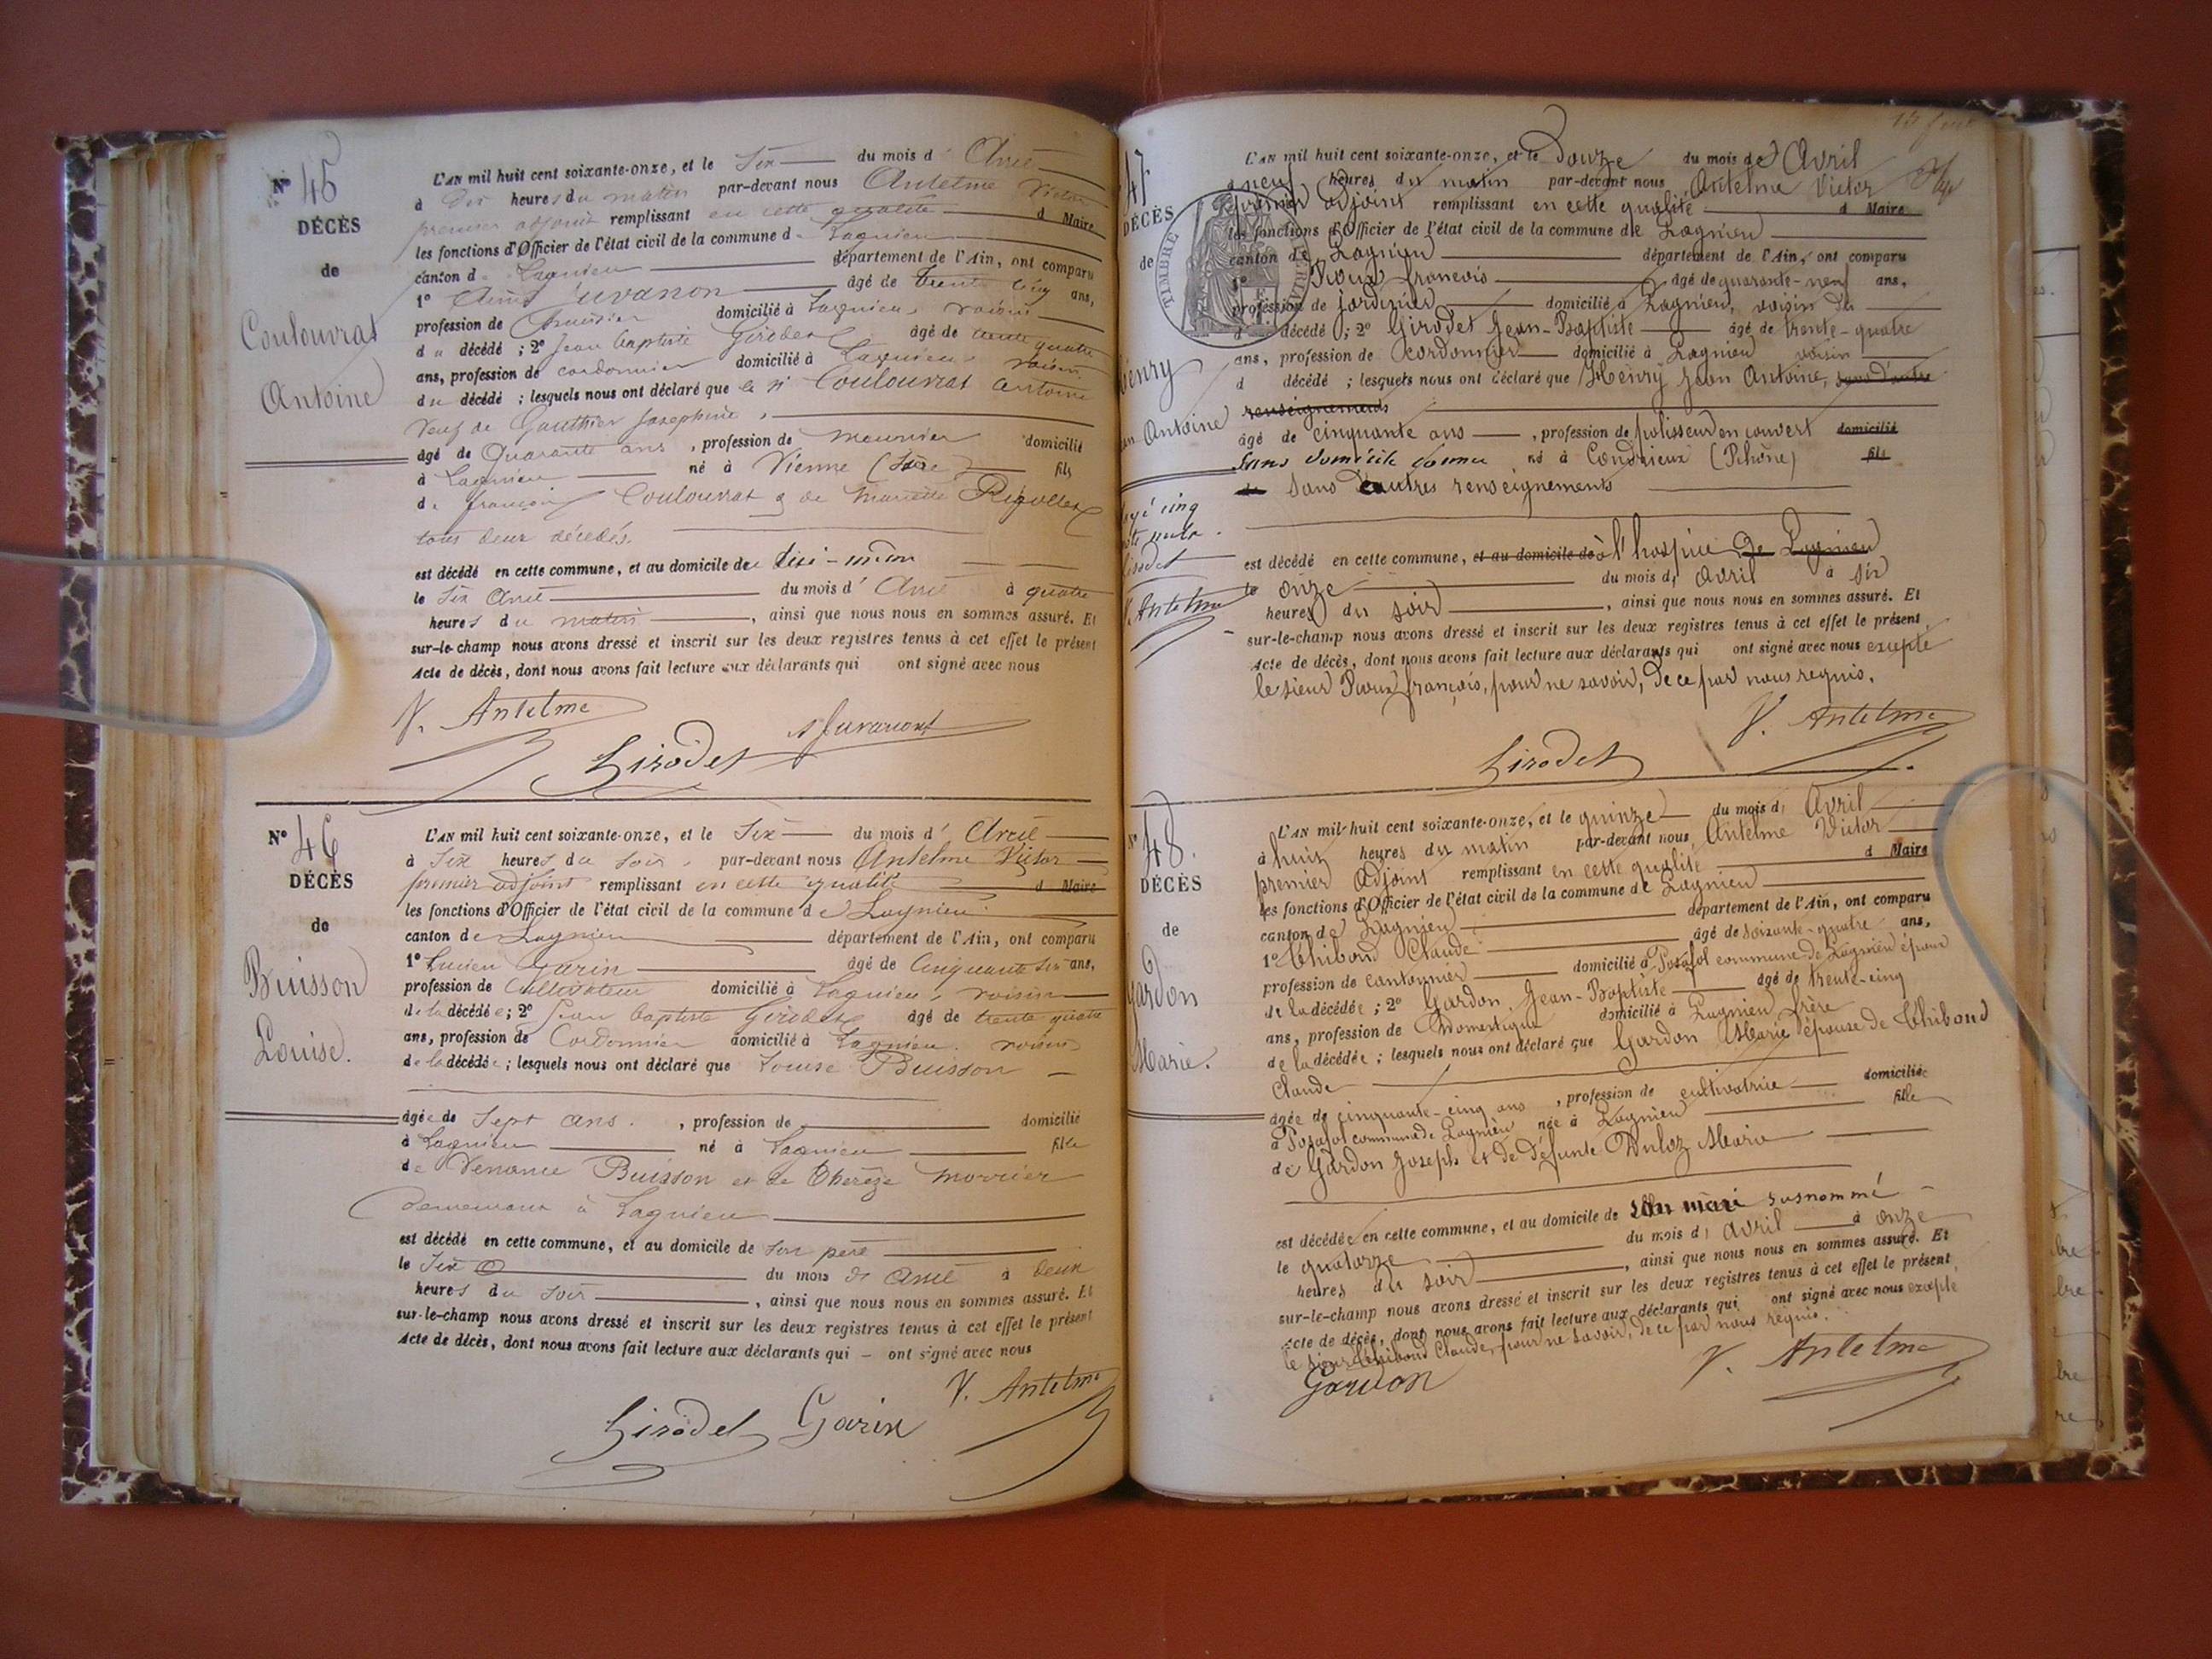 N° 45
DÉCÈS
de
Coulouvrat
Antoine
L'AN mil huit cent soixante-onze, et le Six du mois d' Avril
à Dix heures du matin par-devant nous Antelme Victor
premier adjoint remplissant en cette qualité d Maire
les fonctions d'Officier de l'état civil de la commune de Lagnieu
canton de Lagnieu département de l'Ain, ont comparu
1° Juvanon âgé de trente cinq ans,
profession de domicilié à Lagnieu, voisin
du décédé ; 2° Jean baptiste Girodet âgé de trente quatre
ans, profession de cordonnier domicilié à Lagnieu, voisin
du décédé ; lesquels nous ont déclaré que le sr Coulouvrat Antoine
veuf de Gauthier Joséphine,
âgé de Quarante ans, profession de meunier domicilié
à Lagnieu né à Vienne (Isère) fils
de françois Coulouvrat & de Mariette
tous deux décédés.
est décédé en cette commune, et au domicile de lui-même
le Six Avril du mois d' Avril à quatre
heures du matin, ainsi que nous nous en sommes assuré. Et
sur-le-champ nous avons dressé et inscrit sur les deux registres tenus à cet effet le présent
Acte de décès, dont nous avons fait lecture aux déclarants qui ont signé avec nous
V. Antelme
Girodet
N° 46
DÉCÈS
de
Buisson
Louise.
L'AN mil huit cent soixante-onze, et le Six du mois d' Avril
à Six heures du soir, par-devant nous Antelme Victor
premier adjoint remplissant en cette qualité d Maire
les fonctions d'Officier de l'état civil de la commune de Lagnieu
canton de Lagnieu département de l'Ain, ont comparu
1° Lucien Garin âgé de Cinquante six ans,
profession de Cultivateur domicilié à Lagnieu, voisin
de la décédée ; 2° Jean baptiste Girodet âgé de trente quatre
ans, profession de Cordonnier domicilié à Lagnieu. voisin
de la décédée ; lesquels nous ont déclaré que Louise Buisson
âgée de Sept ans. , profession de domicilié
à Lagnieu né à Lagnieu fille
de Venance Buisson et de Thérèze
Demeurant à Lagnieu
est décédé en cette commune, et au domicile de son père
le Six du mois d' Avril à deux
heures du soir, ainsi que nous nous en sommes assuré. Et
sur-le-champ nous avons dressé et inscrit sur les deux registres tenus à cet effet le présent
Acte de décès, dont nous avons fait lecture aux déclarants qui – ont signé avec nous
V. Antelme
Girodet Garin
47
DÉCÈS
de
Henry
Antoine
V. Antelme
TIMBRE
L'AN mil huit cent soixante-onze, et le Douze du mois de Avril
à neuf heures du matin par-devant nous Antelme Victor
premier adjoint remplissant en cette qualité d Maire
les fonctions d'Officier de l'état civil de la commune de Lagnieu
canton de Lagnieu département de l'Ain, ont comparu
1° Proux françois âgé de quarante-neuf ans,
profession de jardinier domicilié à Lagnieu, voisin du
d décédé ; 2° Girodet Jean-Baptiste âgé de trente-quatre
ans, profession de cordonnier domicilié à Lagnieu voisin
d décédé ; lesquels nous ont déclaré que Henry Jean Antoine, sans d'autre
renseignements
âgé de cinquante ans, profession de polisseur en couvert domicilié
sans domicile connu né à Condrieux (Rhône) fils
de sans d'autres renseignements
est décédé en cette commune, et au domicile de à l'hospice de Lagnieu
le onze du mois d' avril à six
heures du soir, ainsi que nous nous en sommes assuré. Et
sur-le-champ nous avons dressé et inscrit sur les deux registres tenus à cet effet le présent
Acte de décès, dont nous avons fait lecture aux déclarants qui ont signé avec nous excepté
le sieur Proux françois, pour ne savoir, de ce par nous requis.
V. Antelme
Girodet
N° 48.
DÉCÈS
de
Gardon
Marie.
L'AN mil huit cent soixante-onze, et le quinze du mois d' Avril
à huit heures du matin par-devant nous Antelme Victor
premier Adjoint remplissant en cette qualité d Maire
les fonctions d'Officier de l'état civil de la commune de Lagnieu
canton de Lagnieu département de l'Ain, ont comparu
1° Thibond Claude âgé de soixante-quatre ans,
profession de cantonnier domicilié à Posafol commune de Lagnieu époux
de la décédée ; 2° Gardon Jean-Baptiste âgé de trente-cinq
ans, profession de Domestique domicilié à Lagnieu frère
de la décédée ; lesquels nous ont déclaré que Gardon Marie épouse de Thibond
Claude
âgée de cinquante-cinq ans, profession de cultivatrice domiciliée
à Posafol commune de Lagnieu née à Lagnieu fille
de Gardon Joseph et de défunte Duloz Marie
est décédée en cette commune, et au domicile de son mari susnommé
le quatorze du mois d' avril à onze
heures du soir, ainsi que nous nous en sommes assuré. Et
sur-le-champ nous avons dressé et inscrit sur les deux registres tenus à cet effet le présent
Acte de décès, dont nous avons fait lecture aux déclarants qui ont signé avec nous excepté
le sieur Thibond Claude, pour ne savoir, de ce par nous requis.
Gardon V. Antelme